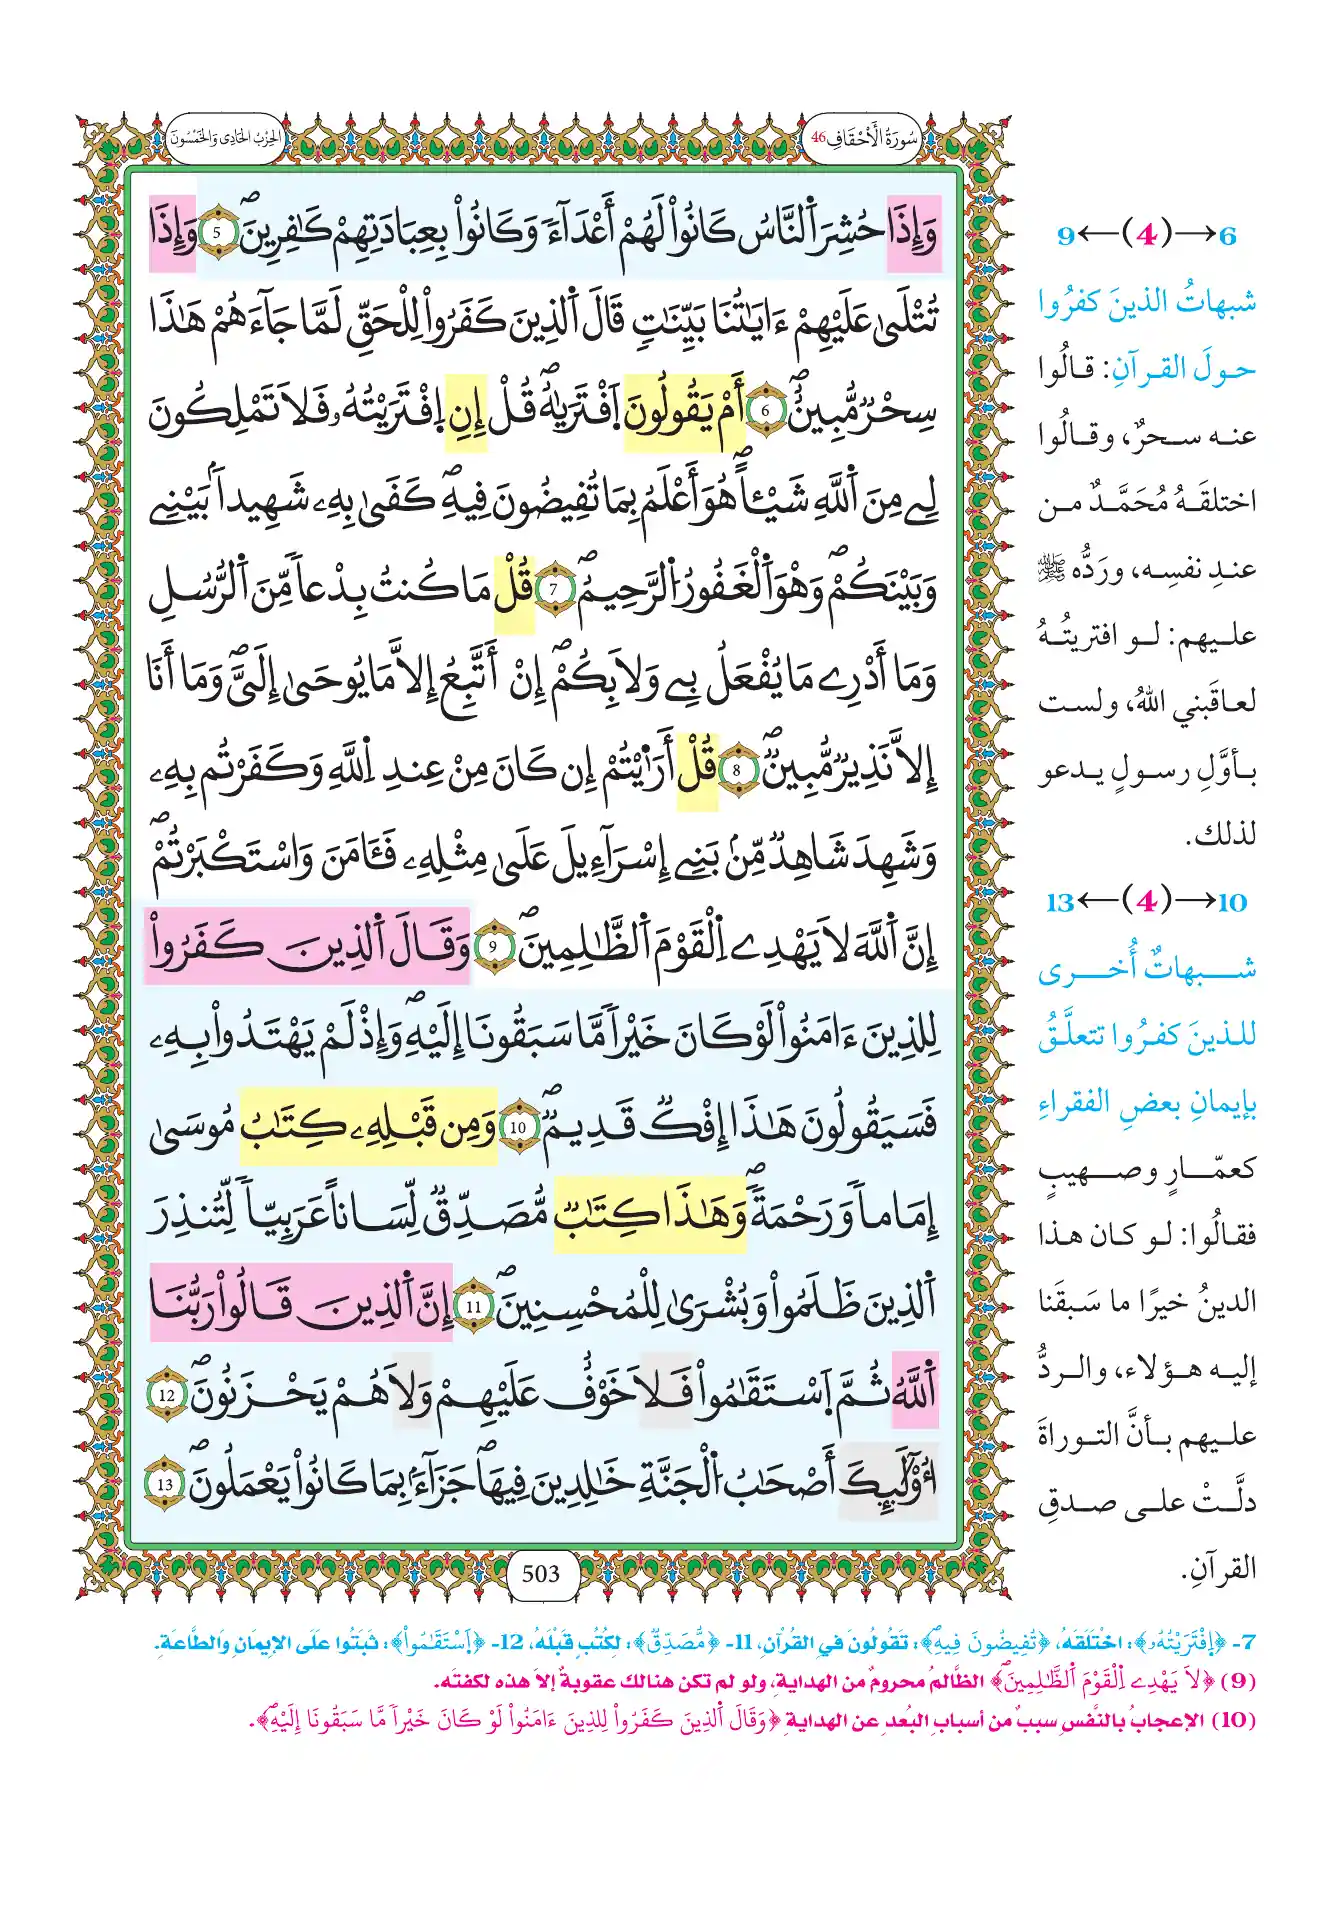 سُورَةُ الْأَحْقَافِ 46
الحِزْبُ الحَادِي وَالخَمْسُونَ
وَإِذَا حُشِرَ اَ۬لنَّاسُ كَانُواْ لَهُمْ أَعْدَآءٗ وَكَانُواْ بِعِبَادَتِهِمْ كَٰفِرِينَۖ 5 وَإِذَا
تُتْلَىٰ عَلَيْهِمْ ءَايَٰتُنَا بَيِّنَٰتٖ قَالَ اَ۬لذِينَ كَفَرُواْ لِلْحَقِّ لَمَّا جَآءَهُمْ هَٰذَا
سِحْرٞ مُّبِينٌۖ 6 أَمْ يَقُولُونَ اَ۪فْتَر۪يٰهُۖ قُلْ إِنِ اِ۪فْتَرَيْتُهُۥ فَلَا تَمْلِكُونَ
لِے مِنَ اَ۬للَّهِ شَيْـٔاًۖ هُوَ أَعْلَمُ بِمَا تُفِيضُونَ فِيهِۖ كَفَىٰ بِهِۦ شَهِيداَۢ بَيْنِے
وَبَيْنَكُمْۖ وَهْوَ اَ۬لْغَفُورُ اُ۬لرَّحِيمُۖ 7 قُلْ مَا كُنتُ بِدْعاٗ مِّنَ اَ۬لرُّسُلِ
وَمَآ أَدْرِے مَا يُفْعَلُ بِے وَلَا بِكُمْۖ إِنْ أَتَّبِعُ إِلَّا مَا يُوحَىٰٓ إِلَيَّۖ وَمَآ أَنَا
إِلَّا نَذِيرٞ مُّبِينٞۖ 8 قُلْ أَرَٰٓيْتُمْ إِن كَانَ مِنْ عِندِ اِ۬للَّهِ وَكَفَرْتُم بِهِۦ
وَشَهِدَ شَاهِدٞ مِّنۢ بَنِےٓ إِسْرَآءِيلَ عَلَىٰ مِثْلِهِۦ فَـَٔامَنَ وَاسْتَكْبَرْتُمْۖ
إِنَّ اَ۬للَّهَ لَا يَهْدِے اِ۬لْقَوْمَ اَ۬لظَّٰلِمِينَۖ 9 وَقَالَ اَ۬لذِينَ كَفَرُواْ
لِلذِينَ ءَامَنُواْ لَوْ كَانَ خَيْراٗ مَّا سَبَقُونَآ إِلَيْهِۖ وَإِذْ لَمْ يَهْتَدُواْ بِهِۦ
فَسَيَقُولُونَ هَٰذَآ إِفْكٞ قَدِيمٞۖ 10 وَمِن قَبْلِهِۦ كِتَٰبُ مُوسَىٰٓ
إِمَاماٗ وَرَحْمَةٗۖ وَهَٰذَا كِتَٰبٞ مُّصَدِّقٞ لِّسَاناً عَرَبِيّاٗ لِّتُنذِرَ
اَ۬لذِينَ ظَلَمُواْ وَبُشْرَىٰ لِلْمُحْسِنِينَۖ 11 إِنَّ اَ۬لذِينَ قَالُواْ رَبُّنَا
اَ۬للَّهُ ثُمَّ اَ۪سْتَقَٰمُواْ فَلَا خَوْفٌ عَلَيْهِمْ وَلَا هُمْ يَحْزَنُونَۖ 12
أُوْلَٰٓئِكَ أَصْحَٰبُ اُ۬لْجَنَّةِ خَٰلِدِينَ فِيهَاۖ جَزَآءَۢ بِمَا كَانُواْ يَعْمَلُونَۖ 13
503
6→(4)←9
شبهاتُ الذينَ كفرُوا
حولَ القرآنِ: قالُوا
عنه سحرٌ، وقالُوا
اختلقَهُ مُحَمَّدٌ من
عندِ نفسِه، وردُّه ﷺ
عليهم: لو افتريتُهُ
لعاقَبني اللهُ، ولست
بأوَّلِ رسولٍ يدعو
لذلك.
10→(4)←13
شبهاتٌ أُخرى
للذينَ كفرُوا تتعلَّقُ
بإيمانِ بعضِ الفقراءِ
كعمّارٍ وصهيبٍ
فقالُوا: لو كان هذا
الدينُ خيرًا ما سَبقَنا
إليه هؤلاء، والردُّ
عليهم بأنَّ التوراةَ
دلَّتْ على صدقِ
القرآنِ.
7- ﴿اِ۪فْتَرَيْتُهُۥ﴾: اخْتَلَقْتُهُ، ﴿تُفِيضُونَ فِيهِۖ﴾: تَقُولُونَ فِي القُرْآنِ، 11- ﴿مُّصَدِّقٞ﴾: لِكُتُبٍ قَبْلَهُ، 12- ﴿اَ۪سْتَقَٰمُواْ﴾: ثَبَتُوا عَلَى الإِيمَانِ وَالطَّاعَةِ.
(9) ﴿لَا يَهْدِے اِ۬لْقَوْمَ اَ۬لظَّٰلِمِينَۖ﴾ الظَّالمُ محرومٌ من الهدايةِ، ولو لم تكن هنالك عقوبةٌ إلا هذه لكفتَه.
(10) الإعجابُ بالنَّفسِ سببٌ من أسبابِ البُعدِ عن الهدايةِ ﴿وَقَالَ اَ۬لذِينَ كَفَرُواْ لِلذِينَ ءَامَنُواْ لَوْ كَانَ خَيْراٗ مَّا سَبَقُونَآ إِلَيْهِۖ﴾.